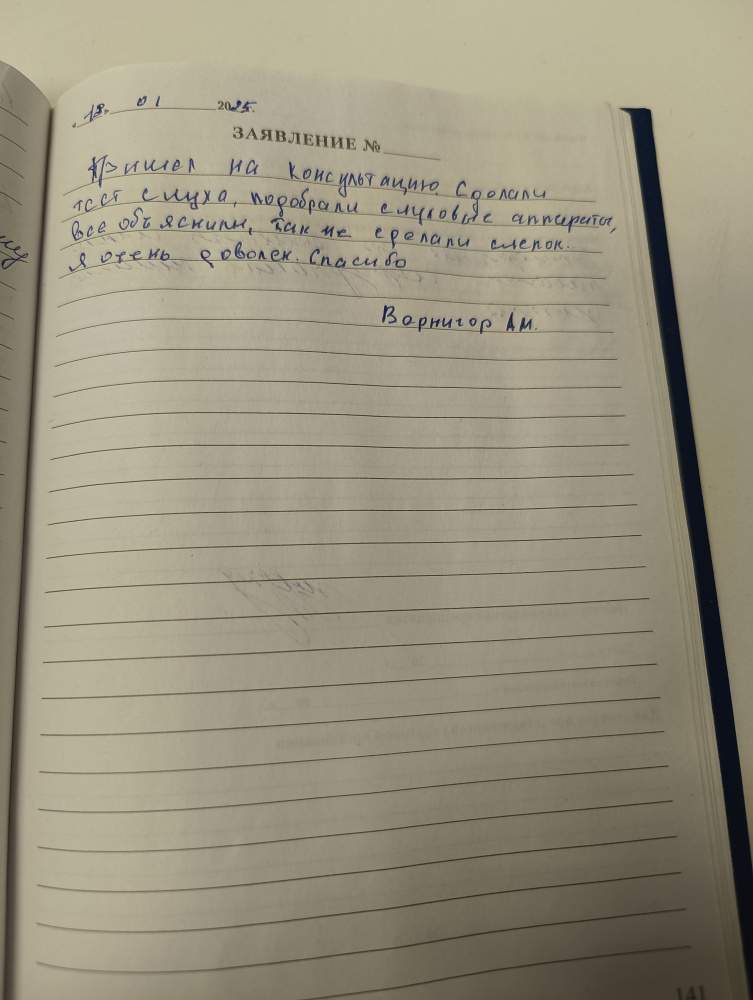 18. 01 2025г.
ЗАЯВЛЕНИЕ №
Пришел на консультацию. Сделали
тест слуха, подобрали слуховые аппараты,
все объяснили, так же сделали слепок.
Я очень доволен. Спасибо
Варнигор А.М.
141